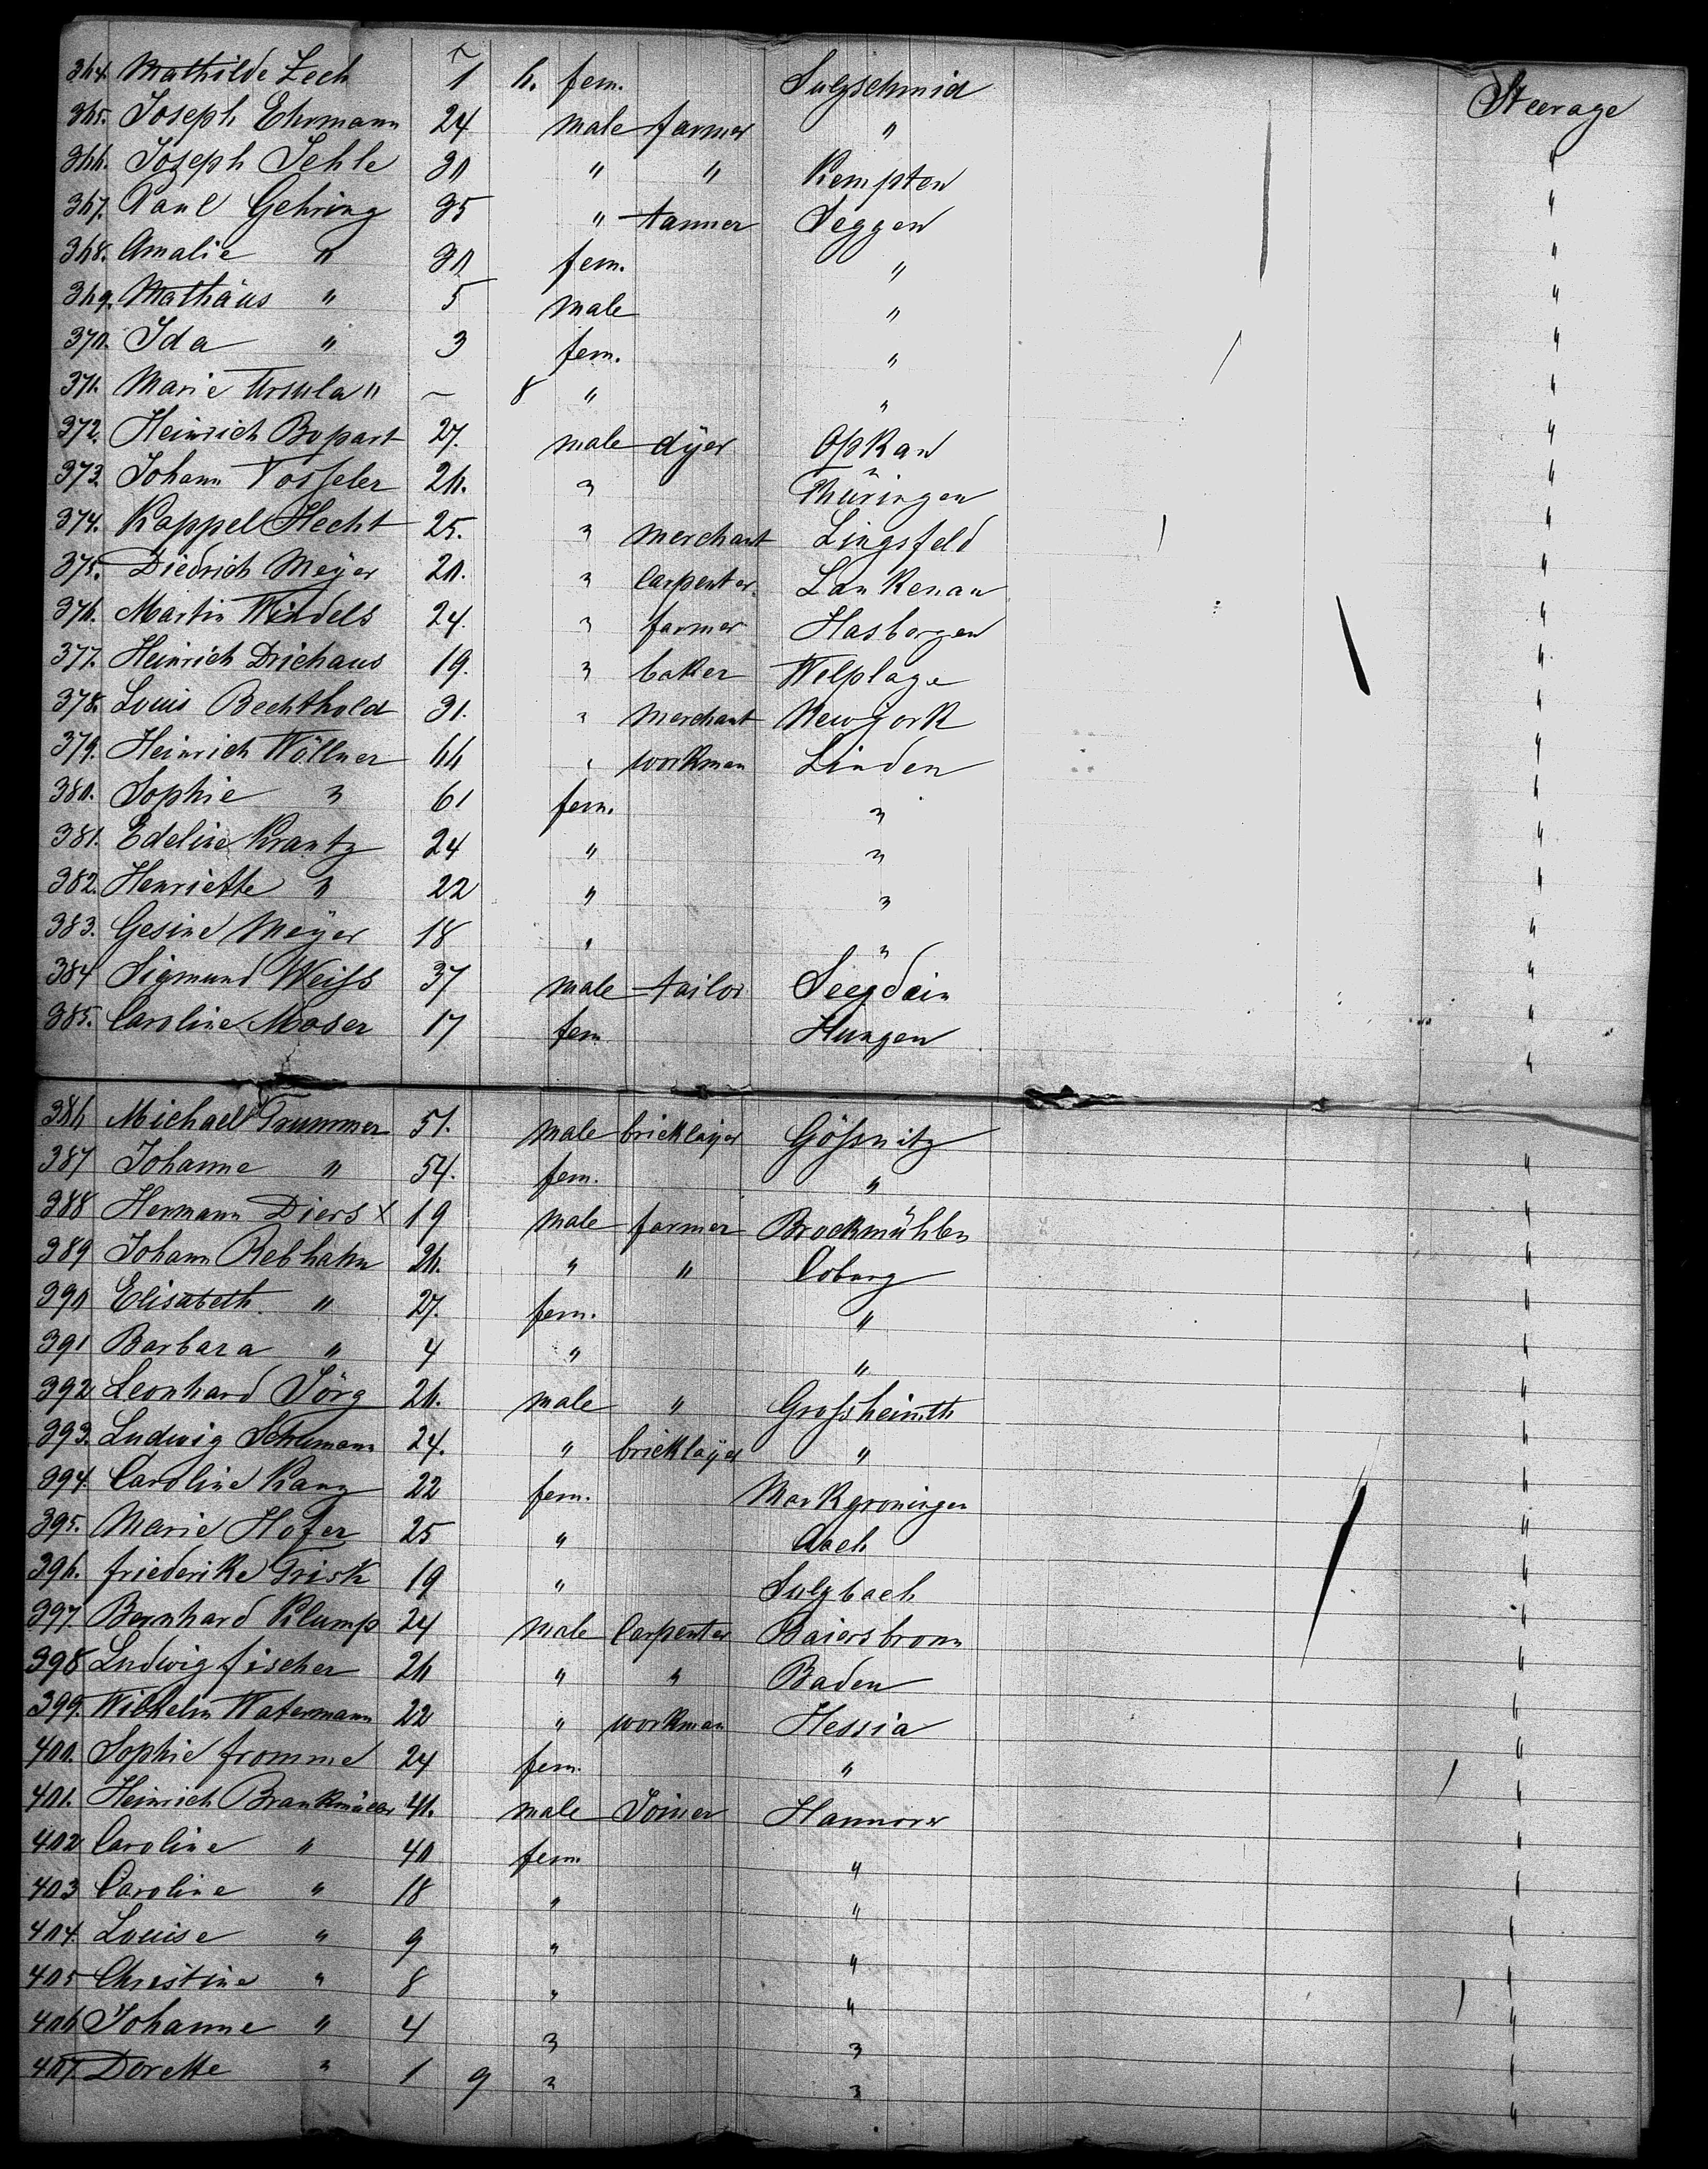 364. Mathilde Zech 1 6. fem. Sulzschmid Steerage
365. Joseph Ehrmann 24 male farmer " "
366. Joseph Jehle 30 " " Kempten "
367. Paul Gehring 35 " tanner Seggen "
368. Amalie " 30 fem. " "
369. Mathäus " 5 male " "
370. Ida " 3 fem. " "
371. Marie Ursula " – 8 " " "
372. Heinrich Bopart 27. male dyer Opkan "
373. Johann Vosseler 26. " Thüringen "
374. Kappel Hecht 25. " merchant Lingsfeld "
375. Diedrich Meÿer 20. " Carpenter. Lankenau "
376. Martin Windels 24. " farmer Hasbergen "
377. Heinrich Driehaus 19. " baker Welplage "
378. Louis Bechthold 31. " merchant Newyork "
379. Heinrich Wöllner 66 " workman Linden "
380. Sophie " 61 fem. " "
381. Edeline Krantz 24 " " "
382. Henriette " 22 " " "
383. Gesine Meÿer 18 " " "
384 Sigmund Weiss 37 male tailor Seegdein "
385. Caroline Moser 17 fem. Hungen "
386 Michael Trummer 51. male bricklayer Gössnitz "
387 Johanne " 54. fem. " "
388 Hermann Diers x 19 male farmer Brockmühlen "
389 Johann Rebhahn 26. " " Coburg "
390 Elisabeth " 27. fem. " "
391 Barbara " 4 " " "
392 Leonhard Jörg 26. male " Grossheirath "
393. Ludwig Schumann 24. " bricklayer " "
394. Caroline Kanz 22 fem. Markgroningen "
395. Marie Hofer 25 " Aach "
396. Friederike Frisk 19 " Sulzbach "
397. Bernhard Klump 24 male Carpenter Baiersbronn "
398 Ludwig Fischer 26 " " Baden "
399. Wilhelm Watermann 22 " workman Hessia "
400. Sophie Fromme 24 fem. " "
401. Heinrich 41. male Joiner Hannover "
402 Caroline " 40 fem. " "
403 Caroline " 18 " " "
404. Louise " 9 " " "
405 Christine " 8 " " "
406 Johanne " 4 " " "
407. Dorette " 1 9 " " "